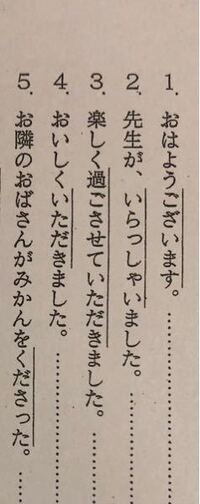 1. おはようございます。…………
2. 先生が、いらっしゃいました。…………
3. 楽しく過ごさせていただきました。…………
4. おいしくいただきました。…………
5. お隣のおばさんがみかんをくださった。…………